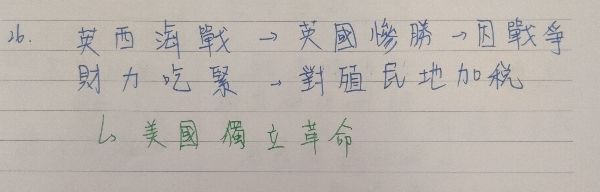 26. 英西海戰 → 英國慘勝 → 因戰爭
財力吃緊 → 對殖民地加稅
↳ 美國獨立革命